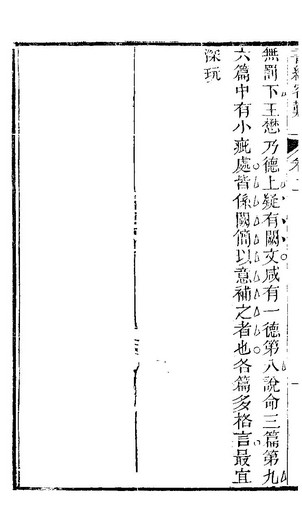 無罰下王懋乃德上疑有闕文咸有一德第八說命三篇第九
六篇中有小疵處皆係闕簡以意補之者也各篇多格言最宜
深玩